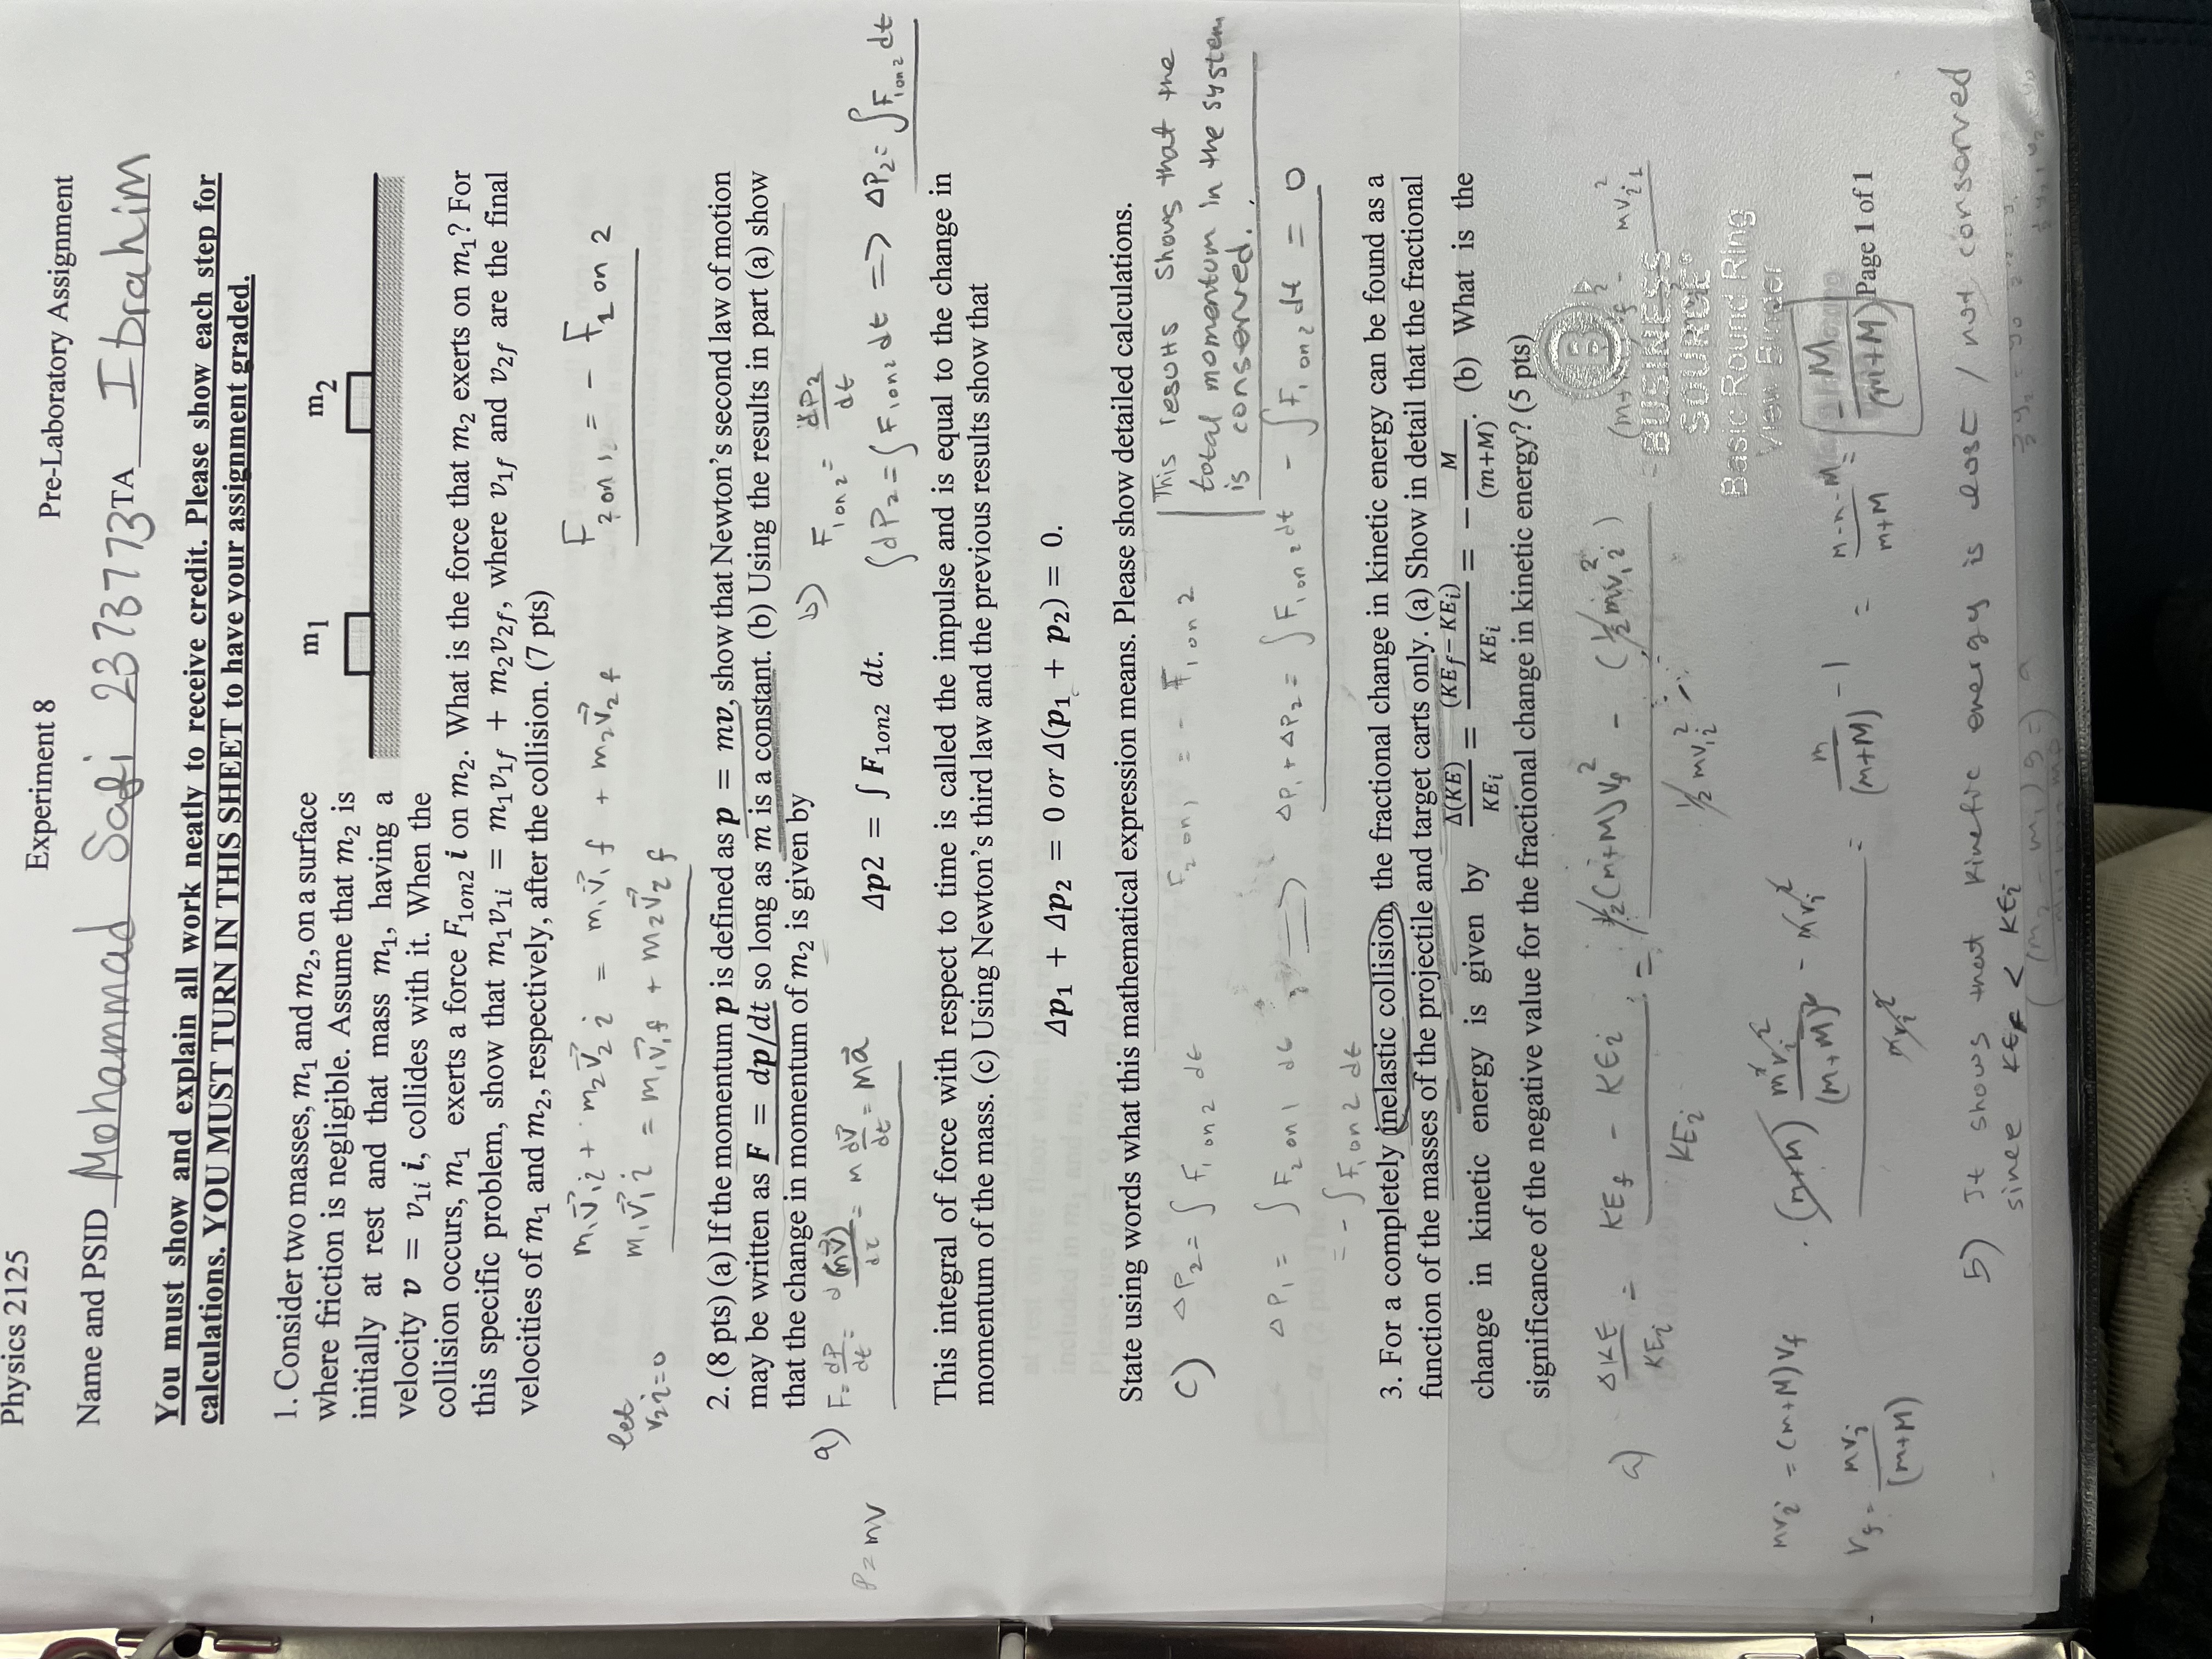 Physics 2125
Experiment 8
Pre-Laboratory Assignment
Name and PSID Mohammad Safi 2373773 TA Ibrahim
You must show and explain all work neatly to receive credit. Please show each step for
calculations. YOU MUST TURN IN THIS SHEET to have your assignment graded.
1. Consider two masses, m₁ and m₂, on a surface
where friction is negligible. Assume that m₂ is
initially at rest and that mass m₁, having a
velocity v = v₁ᵢ i, collides with it. When the
m1
m2
collision occurs, m₁ exerts a force F₁on2 i on m₂. What is the force that m₂ exerts on m₁? For
this specific problem, show that m₁v₁ᵢ = m₁v₁f + m₂v₂f, where v₁f and v₂f are the final
velocities of m₁ and m₂, respectively, after the collision. (7 pts)
m₁v⃗₁i + m₂v⃗₂i = m₁v⃗₁f + m₂v⃗₂f
F₂ on 1 = - F₁ on 2
let
v₂i=0
m₁v⃗₁i = m₁v⃗₁f + m₂v⃗₂f
2. (8 pts) (a) If the momentum p is defined as p = mv, show that Newton's second law of motion
may be written as F = dp/dt so long as m is a constant. (b) Using the results in part (a) show
that the change in momentum of m₂ is given by
P=mv
a) F= dP/dt = d(mv⃗)/dt = m dv⃗/dt = ma⃗
Δp2 = ∫ F₁on2 dt.
b) F₁on2 = dP₂/dt
∫dP₂ = ∫F₁on2 dt => ΔP₂= ∫F₁on2 dt
This integral of force with respect to time is called the impulse and is equal to the change in
momentum of the mass. (c) Using Newton's third law and the previous results show that
Δp₁ + Δp₂ = 0 or Δ(p₁ + p₂) = 0.
State using words what this mathematical expression means. Please show detailed calculations.
c) ΔP₂= ∫ F₁ on 2 dt
F₂ on 1 = - F₁ on 2
This results shows that the
total momentum in the system
is conserved.
ΔP₁ = ∫ F₂ on 1 dt => ΔP₁ + ΔP₂ = ∫F₁ on 2 dt - ∫F₁ on 2 dt = 0
= - ∫F₁ on 2 dt
3. For a completely inelastic collision, the fractional change in kinetic energy can be found as a
function of the masses of the projectile and target carts only. (a) Show in detail that the fractional
change in kinetic energy is given by Δ(KE)/KEᵢ = (KEf− KEᵢ)/KEᵢ = − M/(m+M). (b) What is the
significance of the negative value for the fractional change in kinetic energy? (5 pts)
a) ΔKE/KEi = KEf - KEi / KEi = 1/2(m+M)vf² - (1/2mv₁i²) / 1/2 mv₁i²
B
BUSINESS
SOURCE®
Basic Round Ring
View Binder
mvi = (m+M)vf
vf = mvi/(m+M)
(m+M) m²vi²/(m+M)² - mvi² / mvi² = m/(m+M) - 1 = m-m-M/m+M = -M/(m+M)
Page 1 of 1
b) It shows that kinetic energy is lost / not conserved
since KEf < KEi